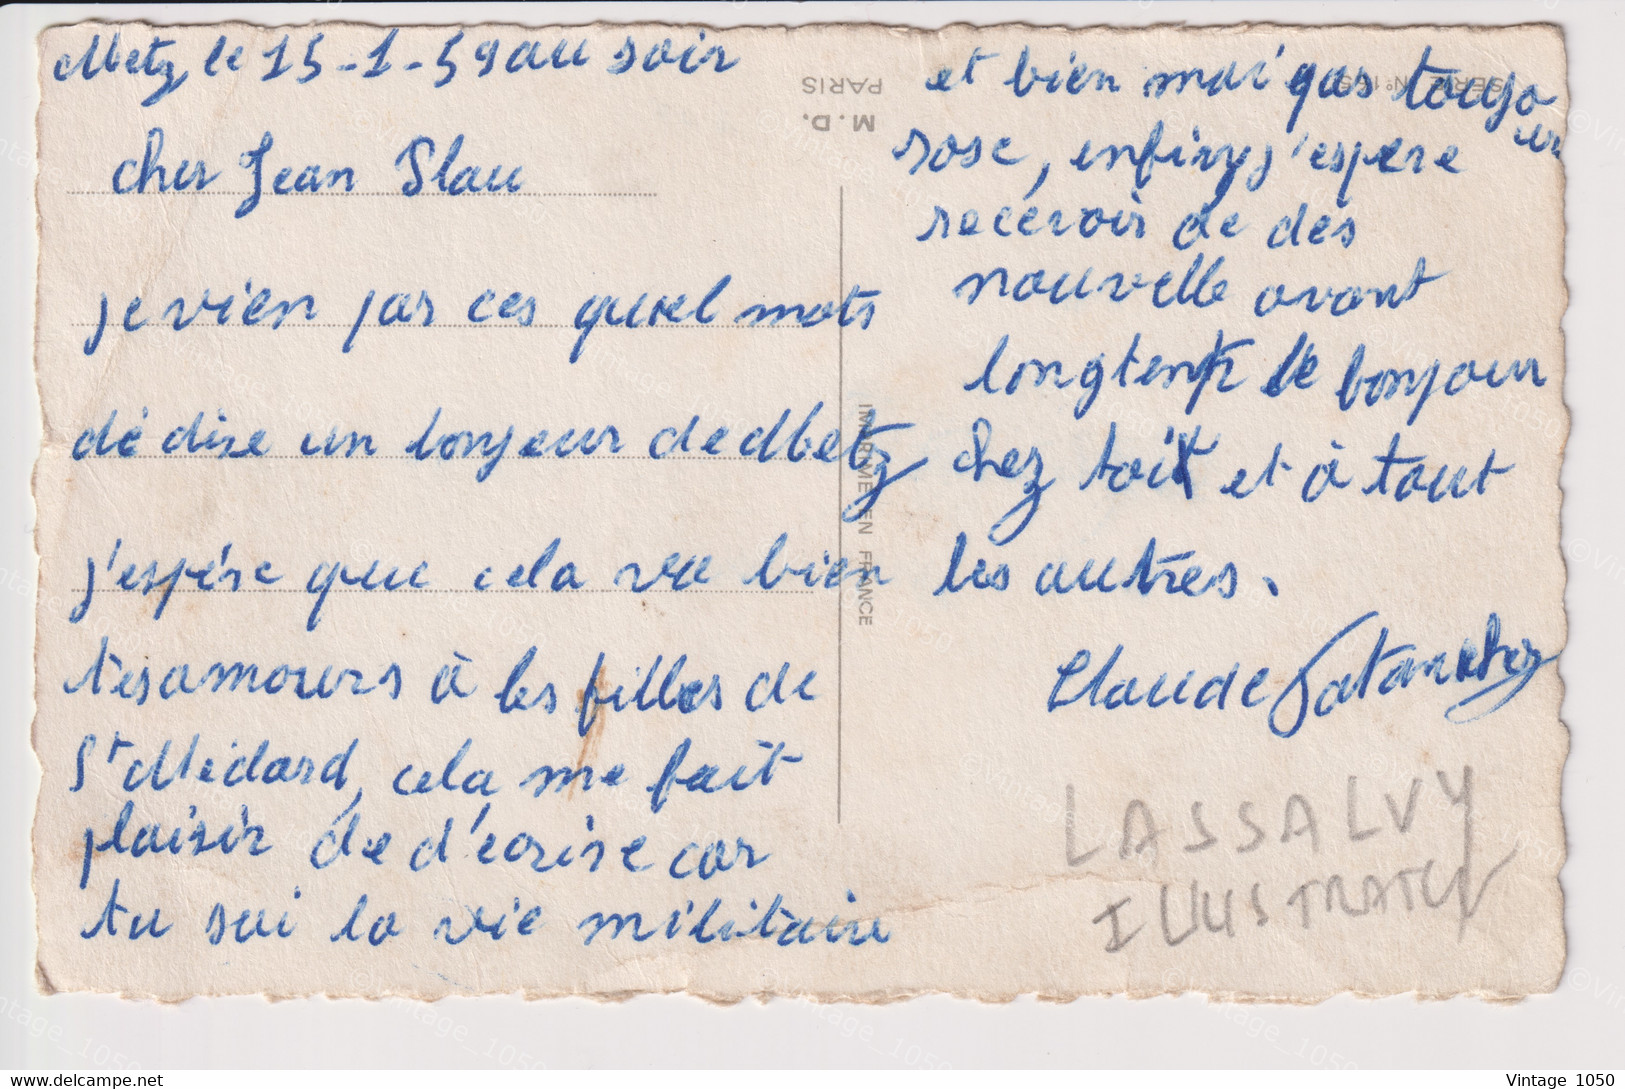 Metz, le 15-1-59 au soir
cher Jean Slau
je vien par ces quel mots
dé dire un bonjeur de Metz
j'espére que cela va bien
tes amours à les filles de
St Médard, cela me fait
plaisir de d'écrire car
tu sai la vie militaire
et bien moi pas toujo
urs
rose, enfin, j'espere
recevoir de des
nouvelle avant
longtemp le bonjour
chez toit et à tout
les autres.
Claude
M. D.
PARIS
SÉRIE N°
IMPRIMÉ EN FRANCE
LASSALVY
ILLUSTRATEUR
Vintage 1050